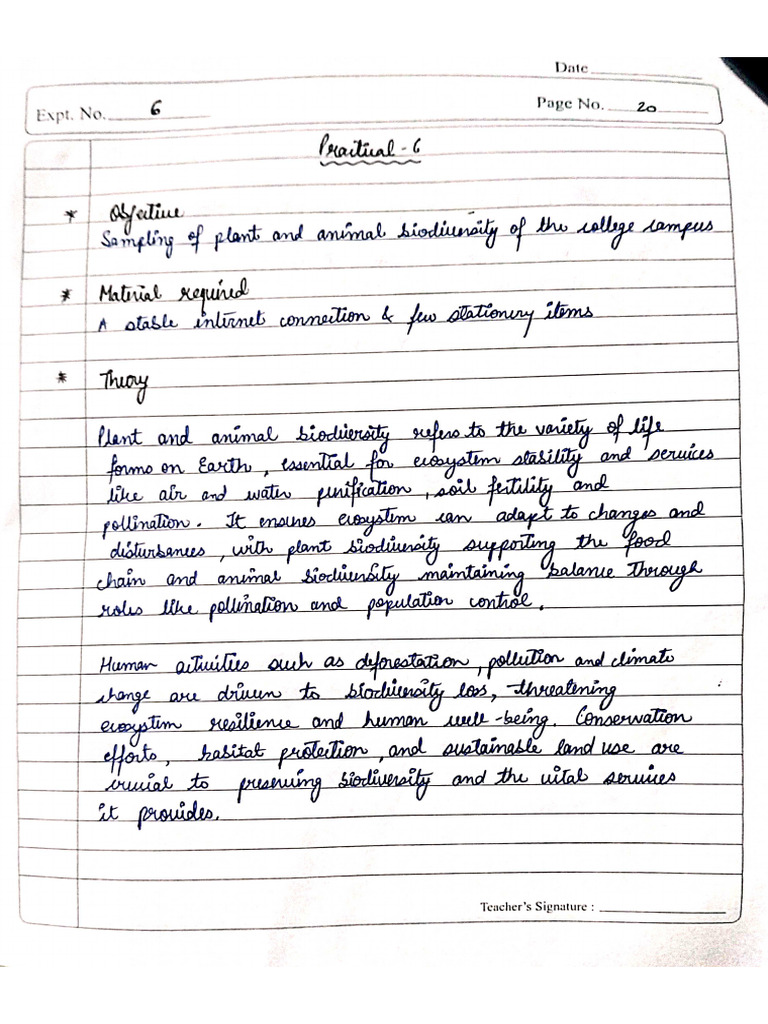 Date
Expt. No. 6
Page No. 20
Practical - 6
* Objective
Sampling of plant and animal biodiversity of the college campus
* Material required
A stable internet connection & few stationery items
* Theory
Plant and animal biodiversity refers to the variety of life
forms on Earth, essential for ecosystem stability and services
like air and water purification, soil fertility and
pollination. It ensures ecosystem can adapt to changes and
disturbances, with plant biodiversity supporting the food
chain and animal biodiversity maintaining balance through
roles like pollination and population control.
Human activities such as deforestation, pollution and climate
change are driven to biodiversity loss, threatening
ecosystem resilience and human well-being. Conservation
efforts, habitat protection, and sustainable land use are
crucial to preserving biodiversity and the vital services
it provides.
Teacher's Signature :